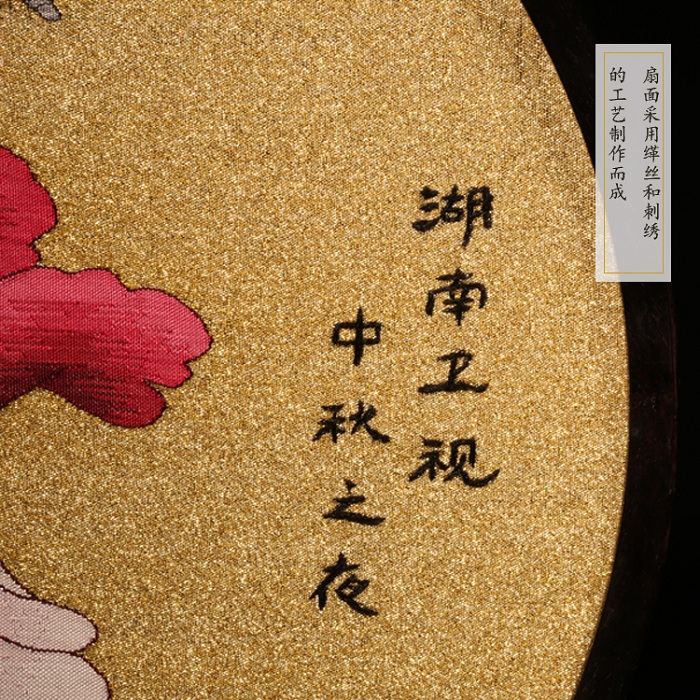 扇面采用缂丝和刺绣
的工艺制作而成
湖南卫视
中秋之夜